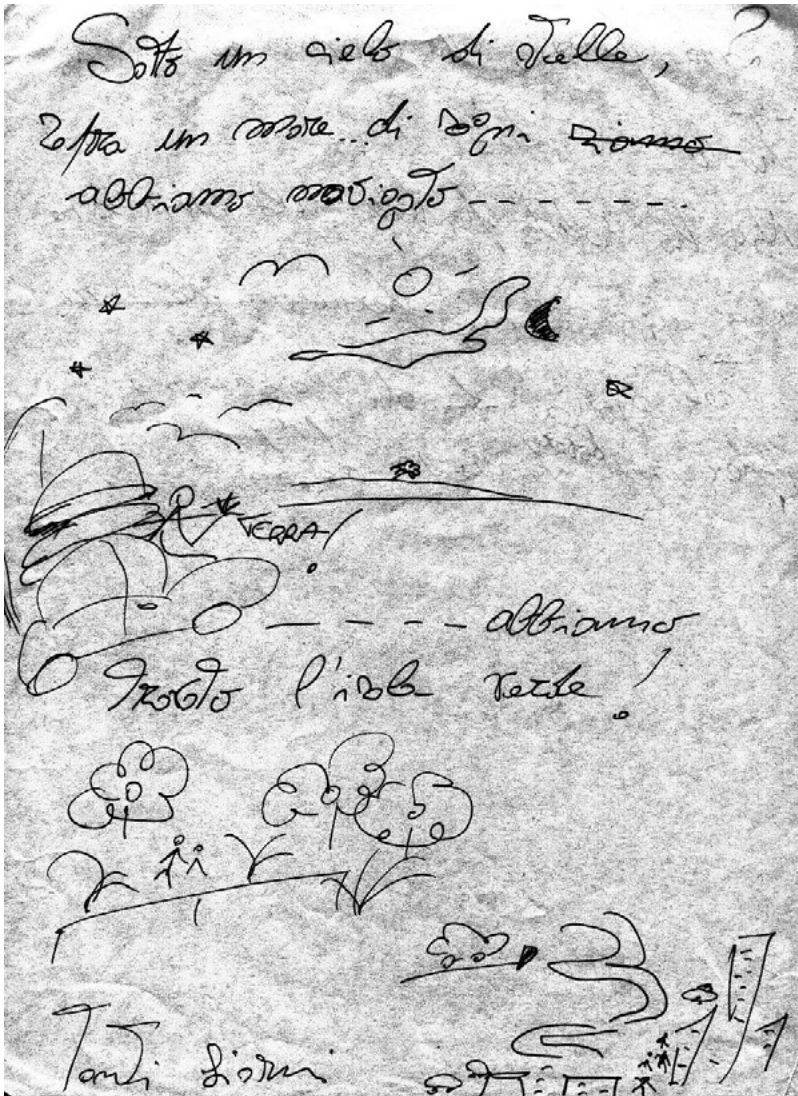 Sotto un cielo di stelle,
sopra un mare... di sogni siamo
abbiamo navigato ----------
TERRA!
------ abbiamo
trovato l'isola verde!
Tanti giorni